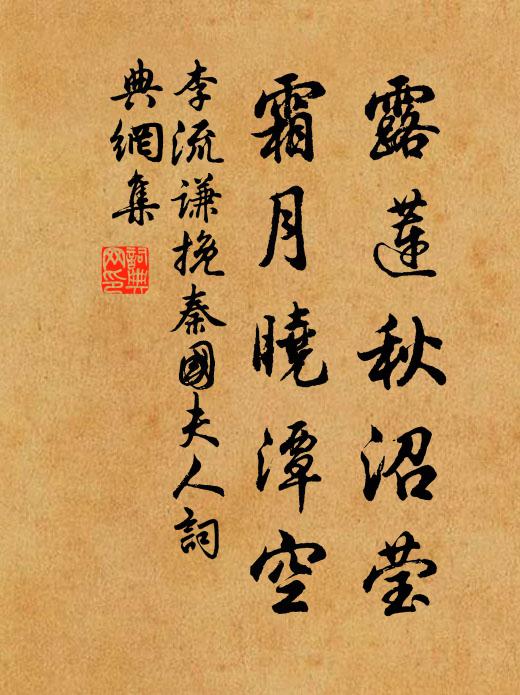 露蓮秋沼莹
霜月曉潭空
李流谦挽秦國夫人詞
典網集
詞典网印